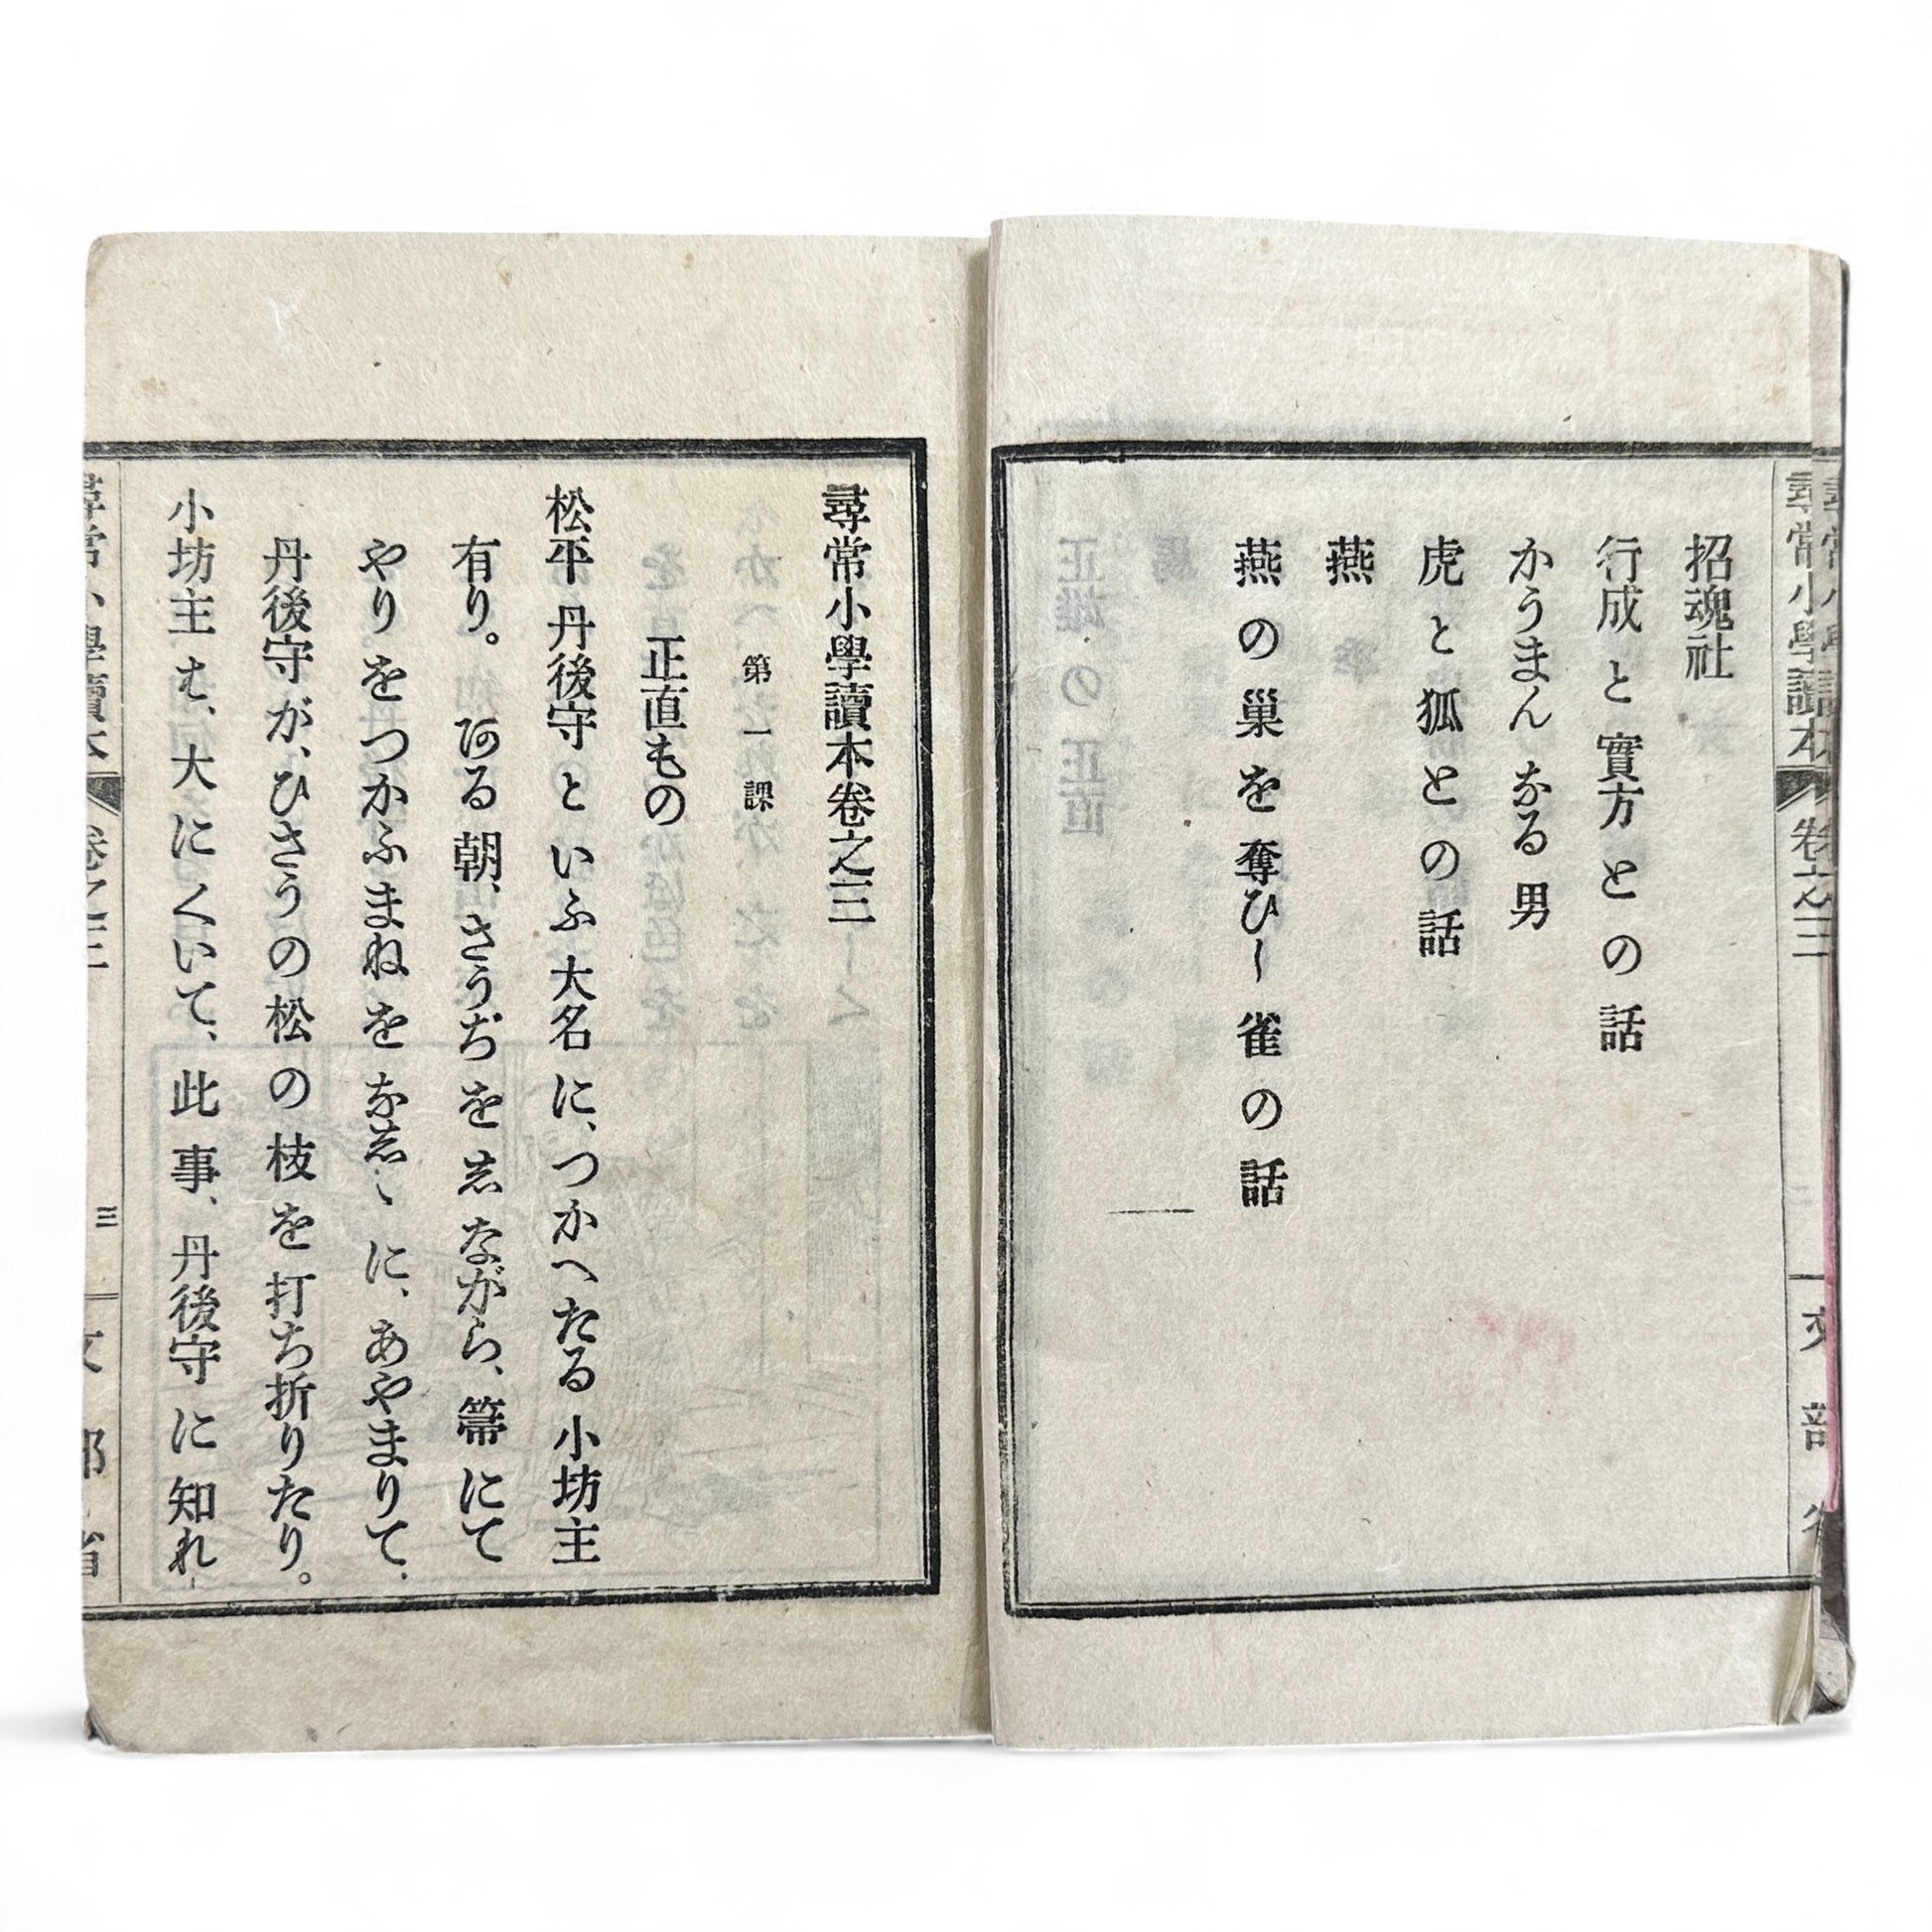 尋常小學讀本 卷之三 文部省
招魂社
行成と實方との話
かうまんなる男
虎と狐との話
燕
燕の巣を奪ひし雀の話
尋常小學讀本卷之三
第一課
正直もの
松平丹後守といふ大名に、つかへたる小坊主
有り。ある朝、さうぢを志ながら、箒にて
やりをつかふまねをな志ゝに、あやまりて、
丹後守が、ひさうの松の枝を打ち折りたり。
小坊主も、大にくいて、此事、丹後守に知れ
尋常小學讀本 卷之三 三 文部省